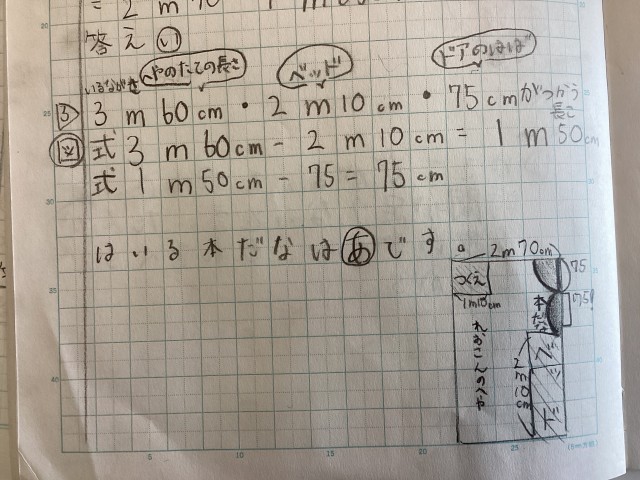 = 2 m 70
答え い
いるながさ へやのたての長さ ベッド ドアのはば
3 3 m 60 cm ・ 2 m 10 cm ・ 75 cm がつかう長さ
図 式 3 m 60 cm - 2 m 10 cm = 1 m 50 cm
式 1 m 50 cm - 75 = 75 cm
はいる本だなは あ です
2m70cm
つくえ
1m10cm
75
本だな
75
2m10cm
ベッド
25
30
35
40
5
10
15
20
25